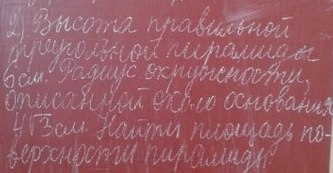 2) Высота правильной
треугольной пирамиды
6 см. Радиус окружности,
описанной около основания
4√3 см. Найти площадь по-
верхности пирамиды.